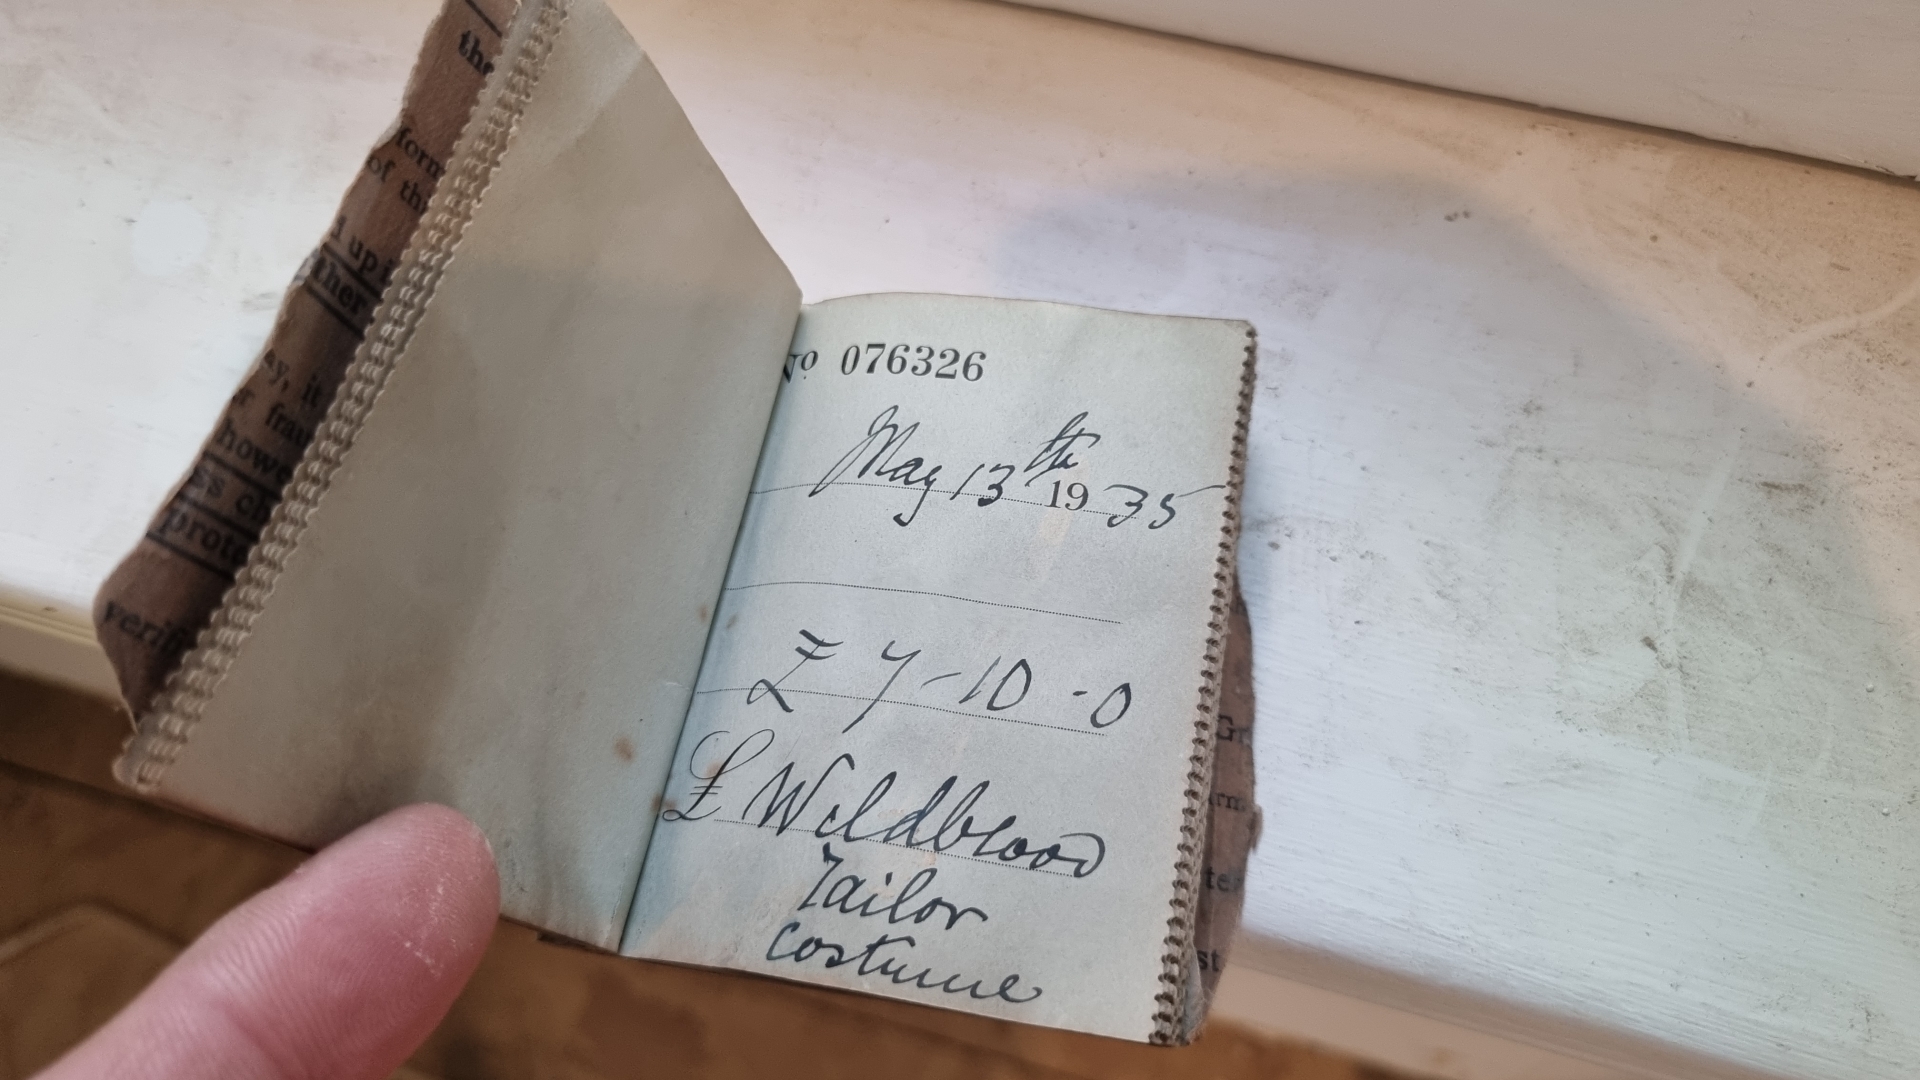 the
form
of th
up
ther
ay, it
frau
how
prote
verifi
No 076326
May 13th 1935
£ 7-10-0
£ Wildblood
Tailor
costume
Gr
rm
ter
st.